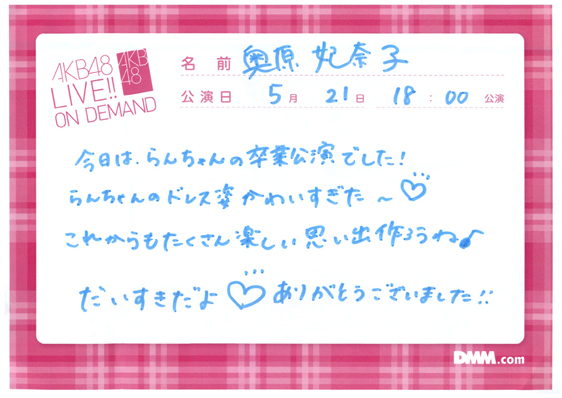 AKB48
LIVE!!
ON DEMAND
AKB
48
名前 奥原 妃奈子
公演日 5月 21日 18:00 公演
今日は、らんちゃんの卒業公演でした!
らんちゃんのドレス姿かわいすぎた〜♡
これからもたくさん楽しい思い出作ろうね♪
だいすきだよ♡ありがとうございました!!
DMM.com